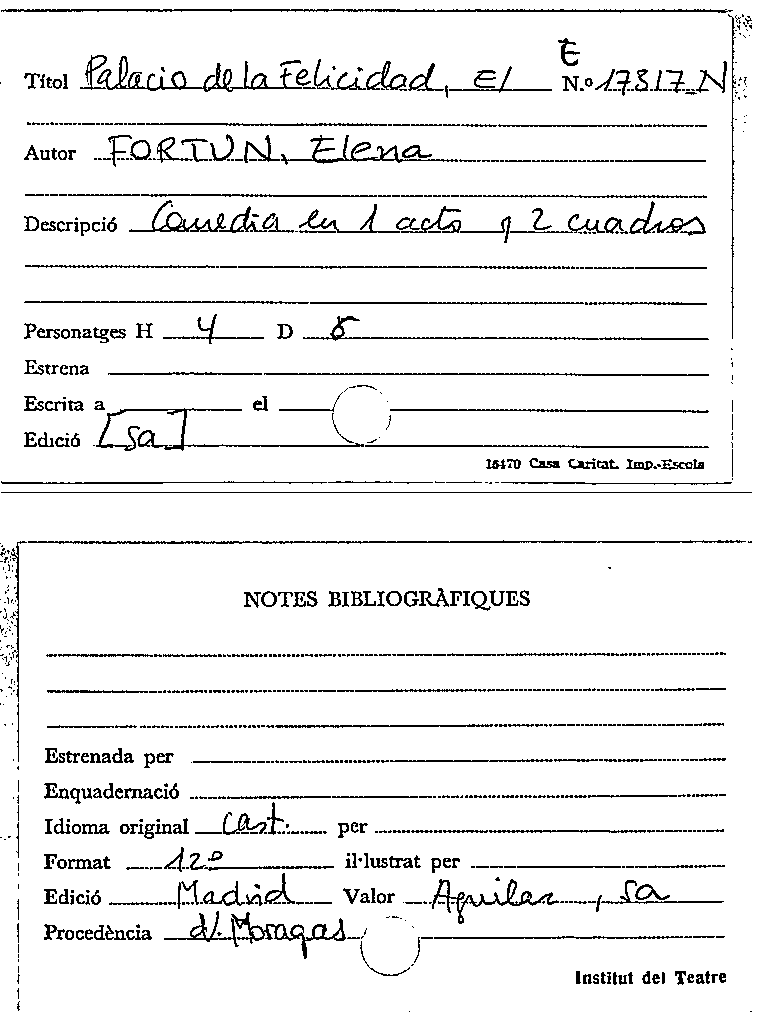 E
Títol Palacio de la Felicidad, El N.º 17317-N
Autor FORTUN, Elena
Descripció Comedia en 1 acto y 2 cuadros
Personatges H 4 D 8
Estrena
Escrita a el
Edició [sa]
15170 Casa Caritat. Imp.-Escola
NOTES BIBLIOGRÀFIQUES
Estrenada per
Enquadernació
Idioma original Cast. per
Format 12º il·lustrat per
Edició Madrid Valor Aguilar, sa
Procedència d/. Moragas
Institut del Teatre